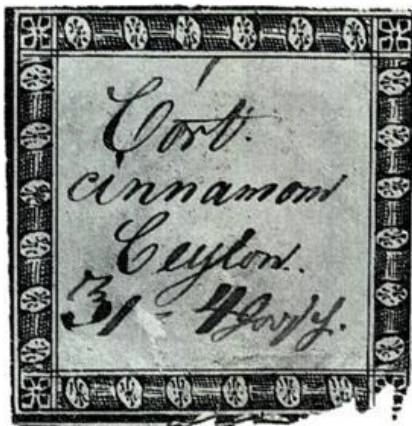 Cort.
cinnamom
Ceylon.